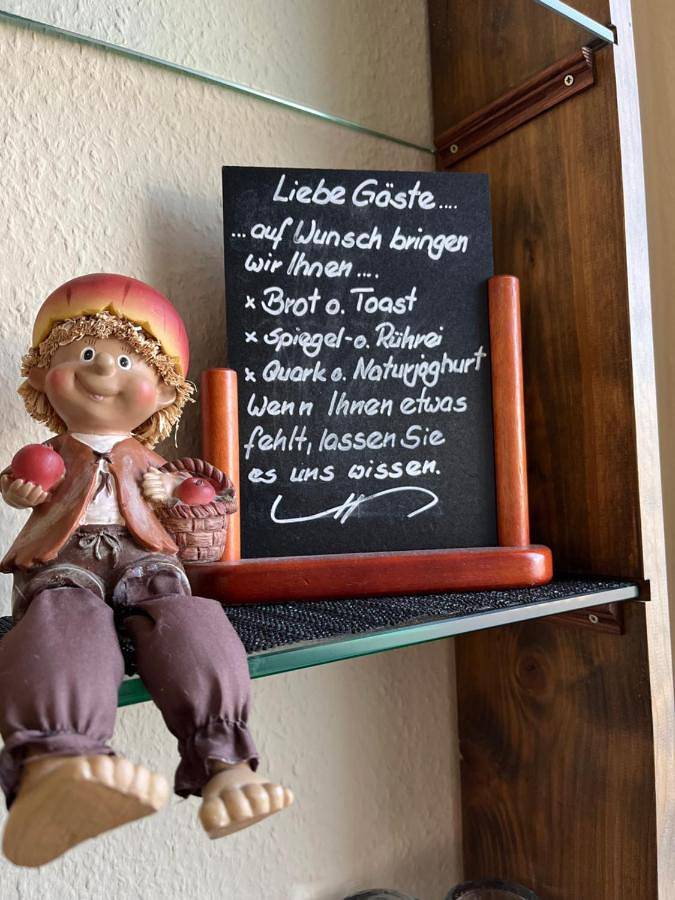 Liebe Gäste....
...auf Wunsch bringen
wir Ihnen....
x Brot o. Toast
x Spiegel- o. Rührei
x Quark o. Naturjoghurt
Wenn Ihnen etwas
fehlt, lassen Sie
es uns wissen.